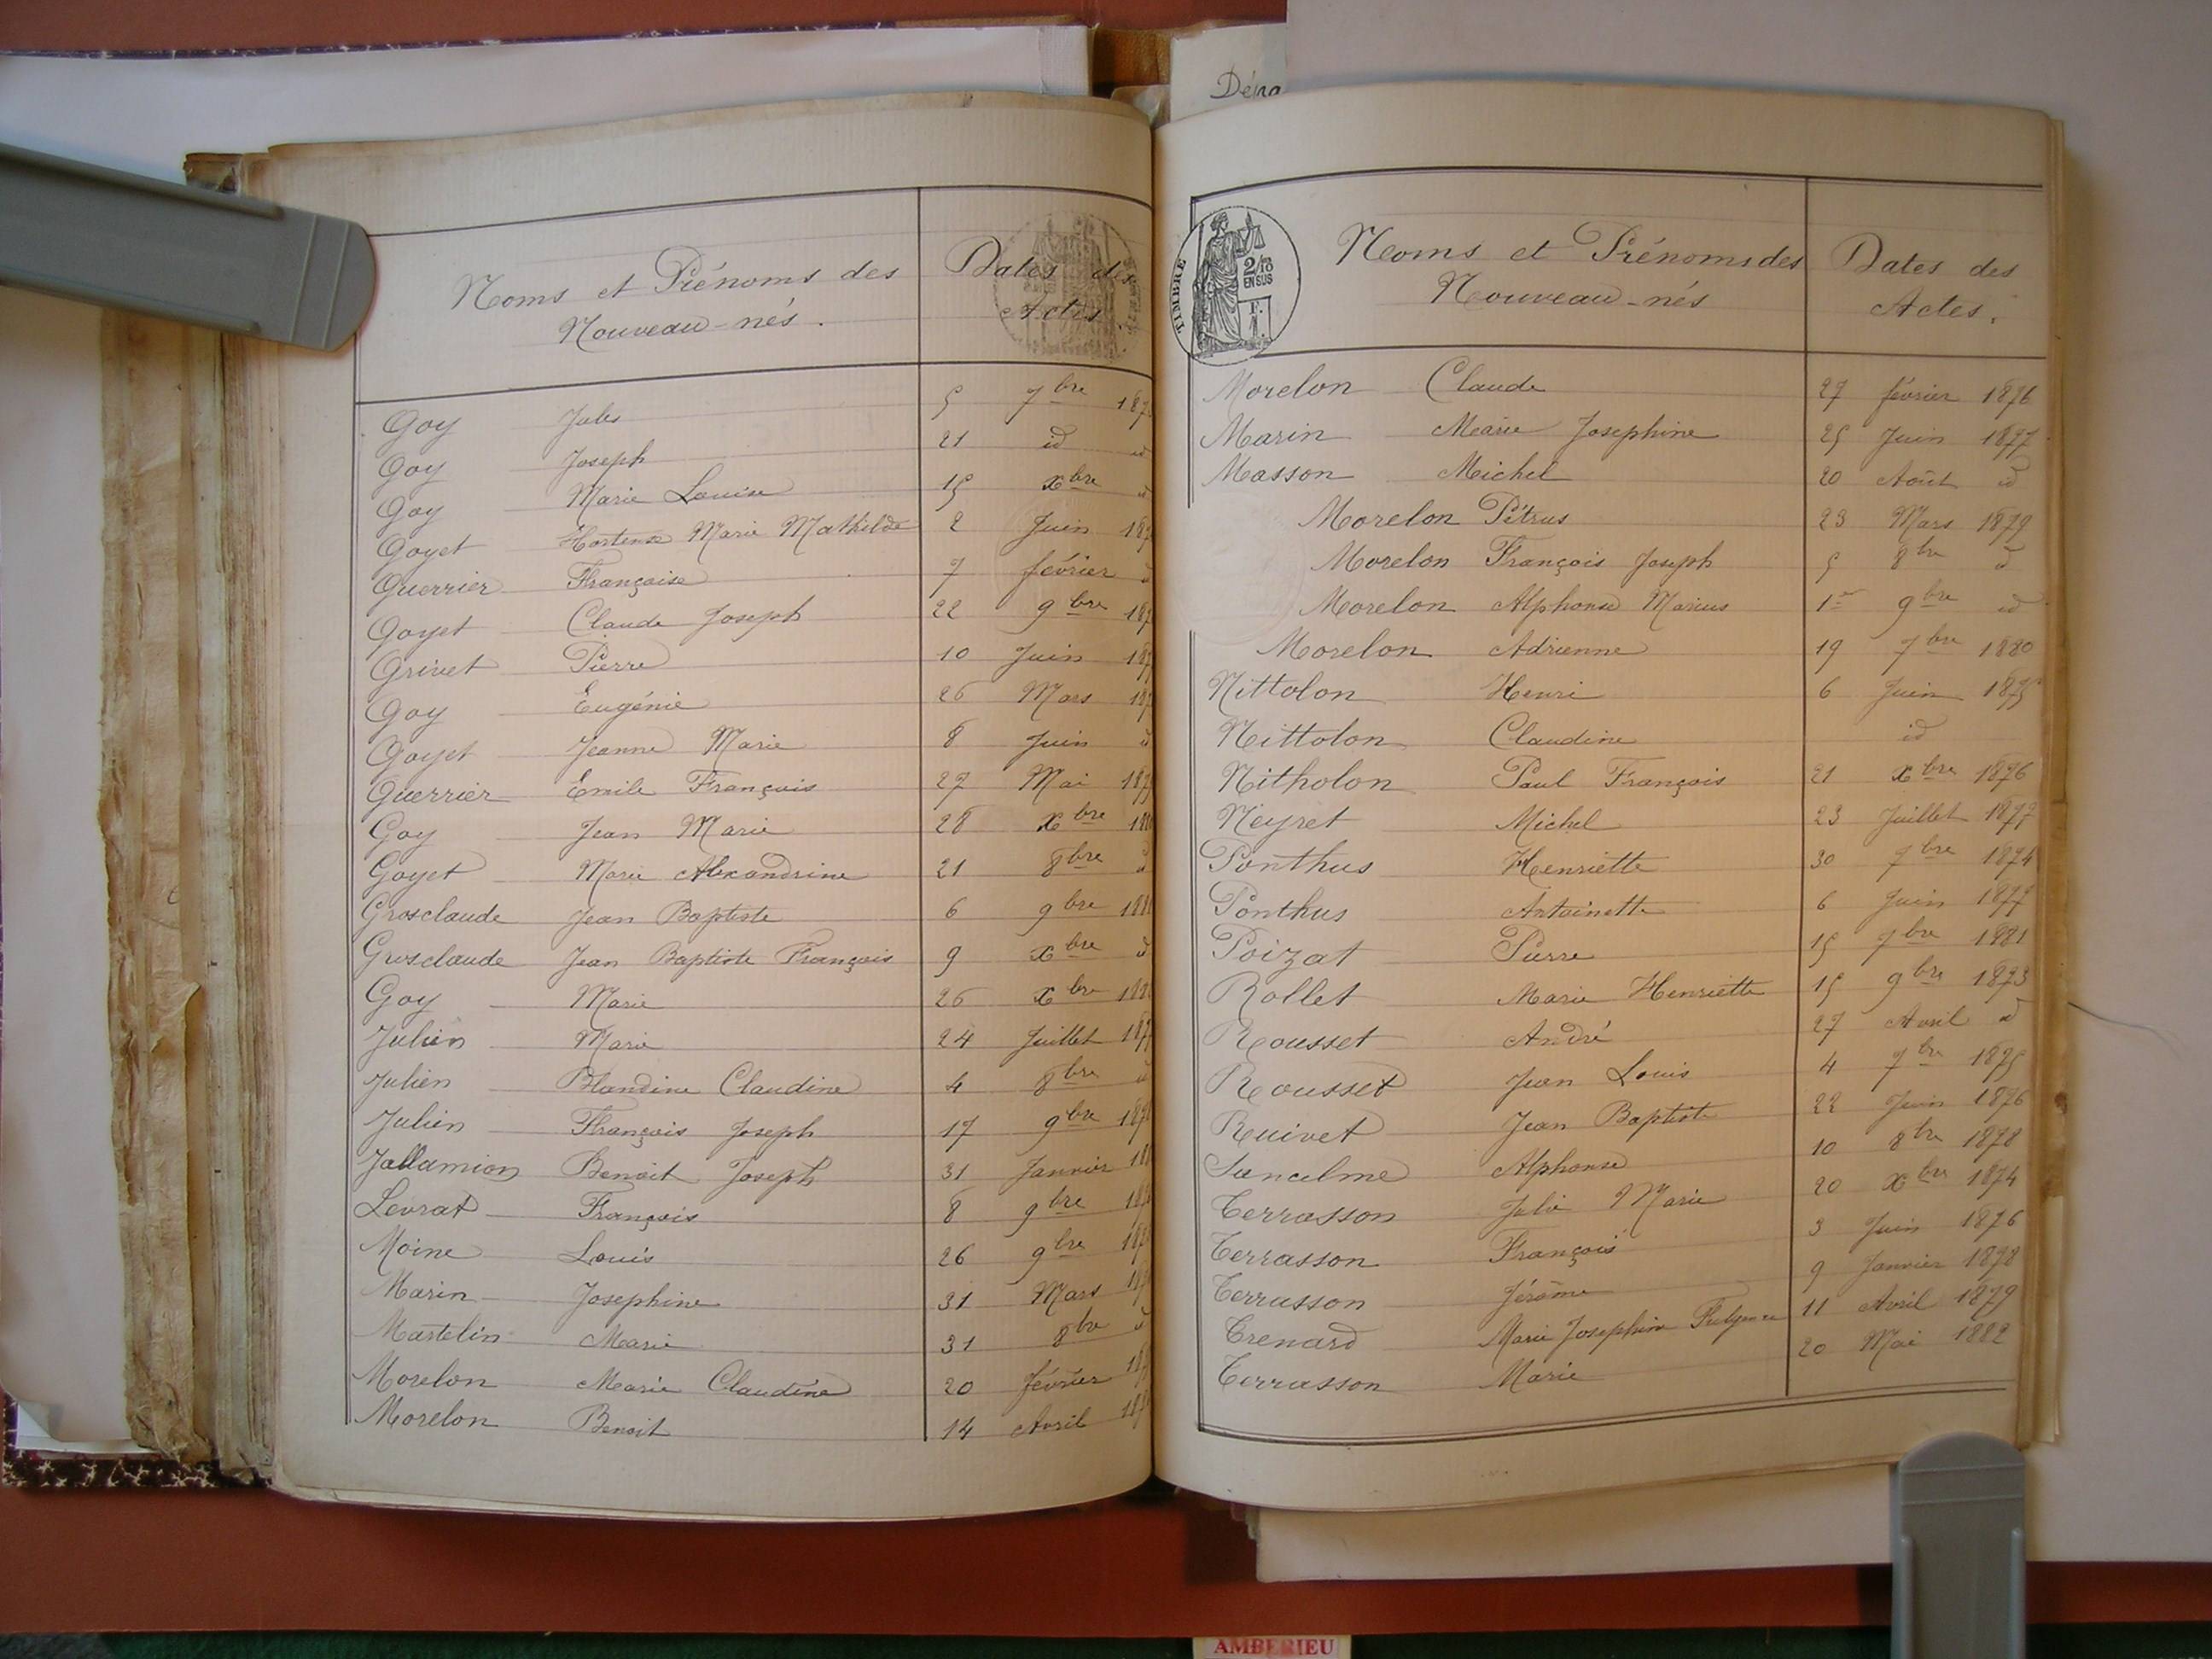 Déna
Noms et Prénoms des
Nouveau-nés.
Dates des
Actes.
Goy Jules 5 7bre 187
Goy Joseph 21 id id
Goy Marie Louise 15 xbre id
Goyet Hortense Marie Mathilde 2 Juin 187
Guerrier Françoise 7 février d
Goyet Claude Joseph 22 9bre 187
Grivet Pierre 10 Juin 187
Goy Eugénie 26 Mars 187
Goyet Jeanne Marie 8 Juin id
Guerrier Emile François 27 Mai 187
Goy Jean Marie 28 xbre 188
Goyet Marie Alexandrine 21 8bre d
Grosclaude Jean Baptiste 6 9bre 188
Grosclaude Jean Baptiste François 9 xbre d
Goy Marie 26 xbre 188
Julien Marie 24 Juillet 187
Julien Blandine Claudine 4 8bre id
Julien François Joseph 17 9bre 187
Jallamion Benoit Joseph 31 Janvier 18
Levrat François 8 9bre 18
Moine Louis 26 9bre 187
Marin Josephine 31 Mars 187
Martelin Marie 31 8bre d
Morelon Marie Claudine 20 février 187
Morelon Benoit 14 Avril 187
TIMBRE
2/10
EN SUS
Noms et Prénoms des
Nouveau-nés
Dates des
Actes.
Morelon Claude 27 février 1876
Marin Marie Josephine 25 Juin 1877
Masson Michel 20 Août id
Morelon Pétrus 23 Mars 1879
Morelon François Joseph 5 8bre d
Morelon Alphonse Marius 1er 9bre id
Morelon Adrienne 19 7bre 1880
Nittolon Henri 6 Juin 1875
Nittolon Claudine id
Nitholon Paul François 21 xbre 1876
Neyret Michel 23 Juillet 1877
Ponthus Henriette 30 7bre 1874
Ponthus Antoinette 6 Juin 1877
Poizat Pierre 15 7bre 1881
Rollet Marie Henriette 15 9bre 1873
Rousset André 27 Avril d
Rousset Jean Louis 4 7bre 1875
Ruivet Jean Baptiste 22 Juin 1876
Sancelme Alphonse 10 8bre 1878
Terrasson Julie Marie 20 xbre 1874
Terrasson François 3 Juin 1876
Terrasson Jérôme 9 Janvier 1878
Trenard Marie Josephine 11 Avril 1879
Terrasson Marie 20 Mai 1882
AMBERIEU